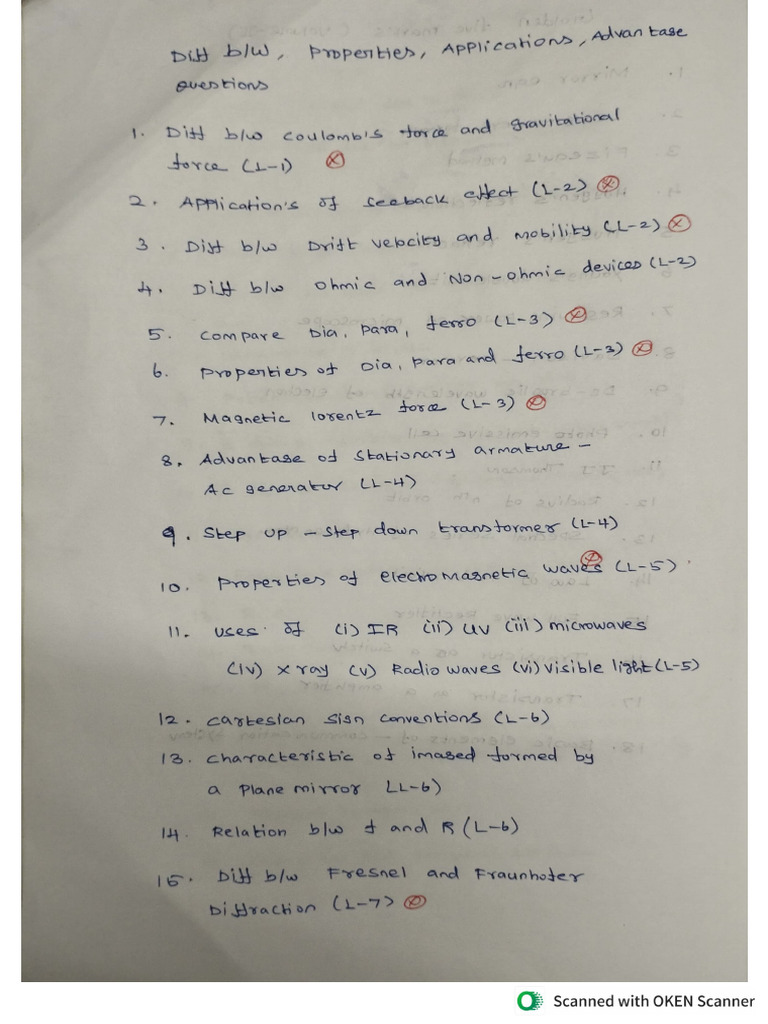 Diff b/w, Properties, Applications, Advantage
Questions
1. Diff b/w coulomb's force and gravitational
force (L-1)
2. Application's of seeback effect (L-2)
3. Diff b/w Drift velocity and mobility (L-2)
4. Diff b/w ohmic and Non-ohmic devices (L-2)
5. compare Dia, para, ferro (L-3)
6. properties of Dia, para and ferro (L-3)
7. Magnetic lorentz force (L-3)
8. Advantage of stationary armature -
Ac generator (L-4)
9. Step up - step down transformer (L-4)
10. Properties of electromagnetic waves (L-5)
11. uses of (i) IR (ii) UV (iii) microwaves
(iv) x ray (v) Radio waves (vi) visible light (L-5)
12. cartesian sign conventions (L-6)
13. characteristic of imaged formed by
a plane mirror (L-6)
14. Relation b/w f and R (L-6)
15. Diff b/w Fresnel and Fraunhofer
Diffraction (L-7)
Scanned with OKEN Scanner